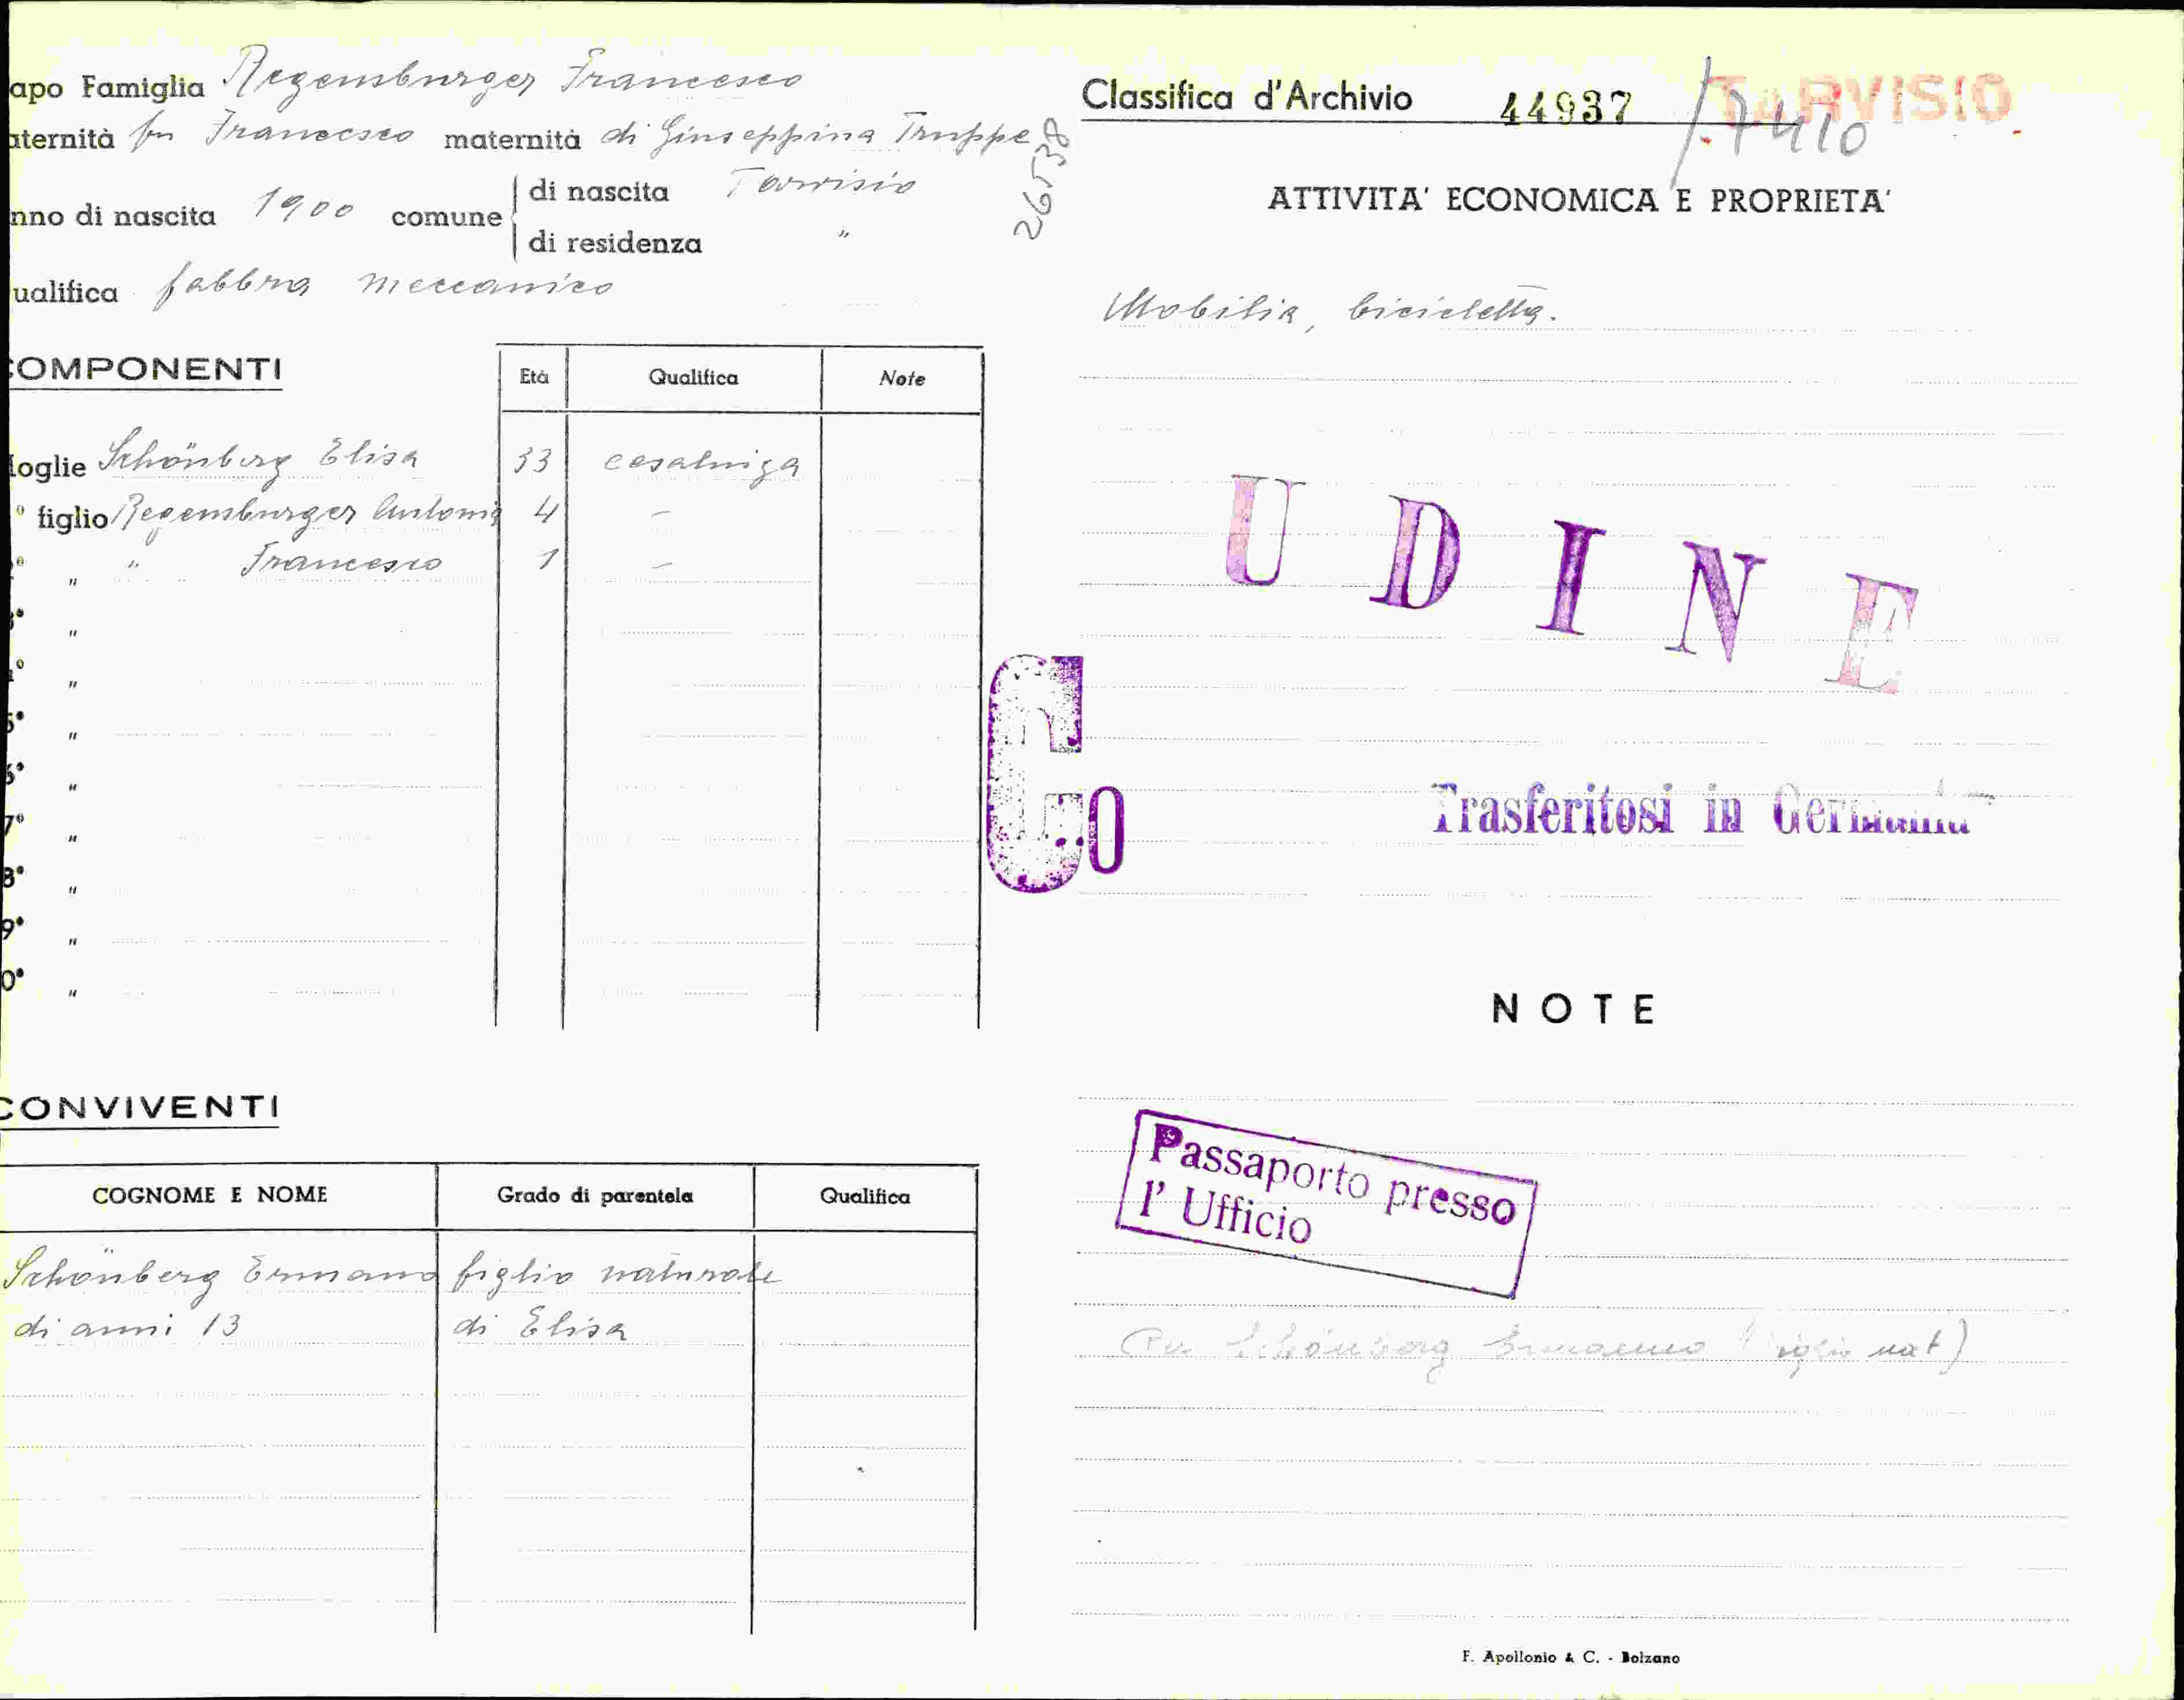 apo Famiglia Regensburger Francesco
aternità fu Francesco maternità di Giuseppina Truppe
26538
nno di nascita 1900 comune di nascita Tarvisio
di residenza "
ualifica fabbro meccanico
COMPONENTI Età Qualifica Note
Moglie Schönberg Elisa 33 casalinga
° figlio Regensburger Antonia 4 —
° " " Francesco 1 —
3° "
4° "
5° "
6° "
7° "
8° "
9° "
0° "
CONVIVENTI
COGNOME E NOME Grado di parentela Qualifica
Schönberg Ermanno figlio naturale
di anni 13 di Elisa
Classifica d'Archivio 44937 / 7410 TARVISIO
ATTIVITA' ECONOMICA E PROPRIETA'
Mobilia, bicicletta.
UDINE
Go
Trasferitosi in Germania
NOTE
Passaporto presso
l' Ufficio
(Per Schönberg Ermanno (figlio nat)
F. Apollonio & C. - Bolzano